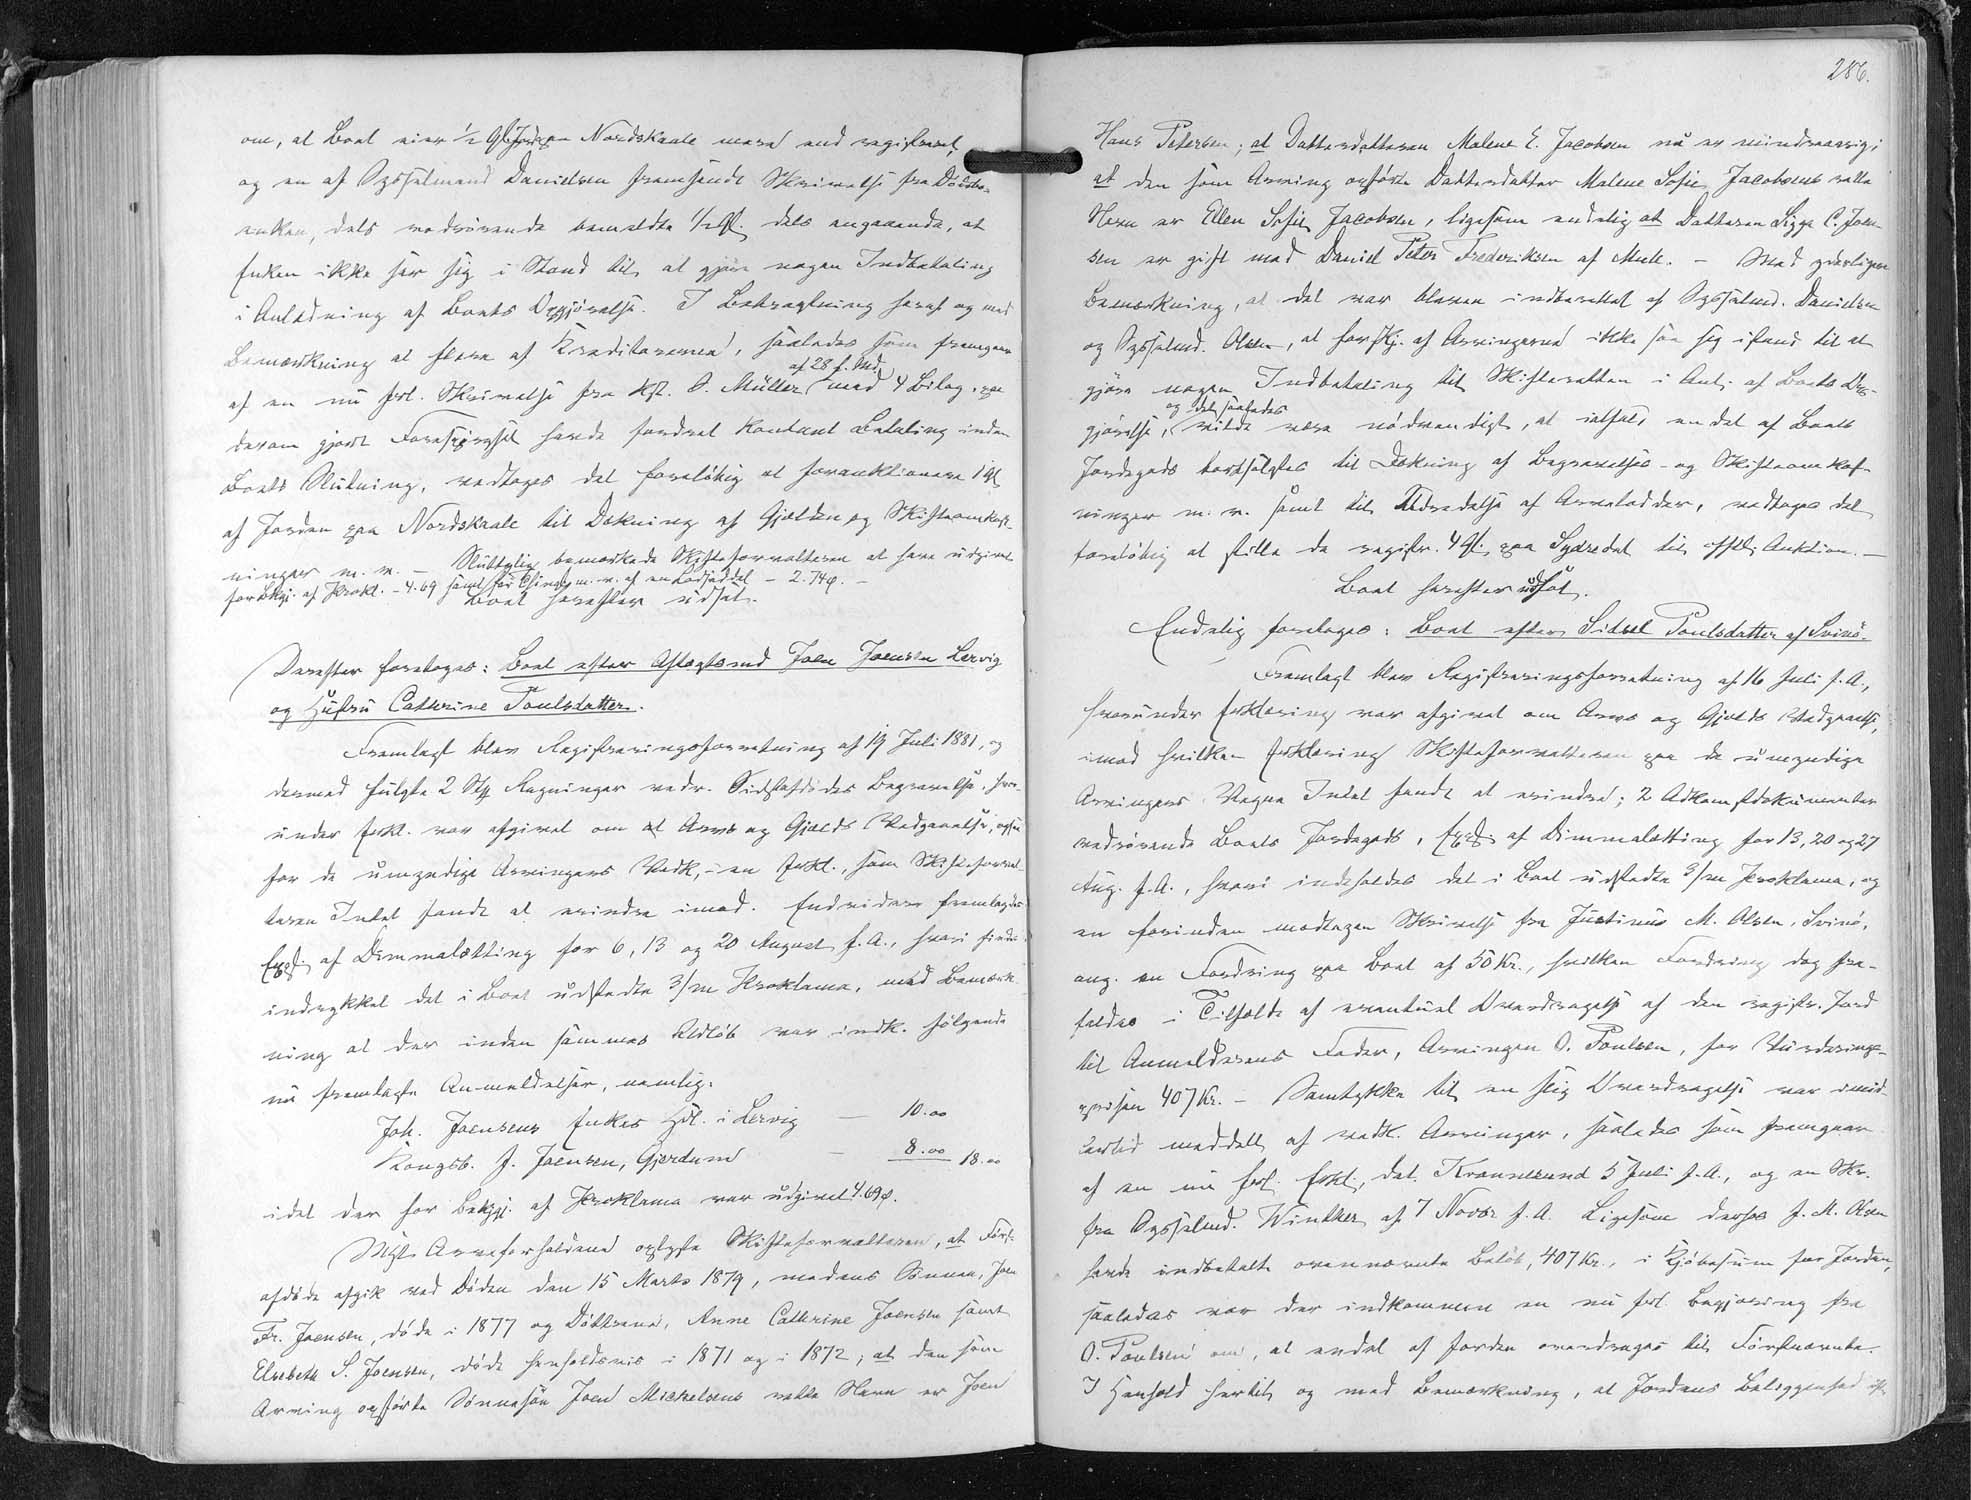 om, at Boet eier 1/2 Gl. Jord paa Nordskaale mere end registreret,
og en af Sysselmand Danielsen fremsendt Skrivelse fra Døds-
enken, dels vedrørende bemeldte 1/2 Gl. dels angaaende, at
Enken ikke ser sig i Stand til at gjøre nogen Indbetaling
i Anledning af Boets Opgjørelse. I Betragtning heraf og med
Bemærkning at flere af Kreditorerne, saaledes som fremgaar
af en nu frl. Skrivelse fra Kst. S. Müller af 28 f. Md. med 4 Bilag, paa
derom gjort Forespørgsel havde fordret kontant Betaling inden
Boets Slutning, vedtoges det foreløbig at forauktionere 1 Gl.
af Jorden paa Nordskaale til Dækning af Gjælden og Skifteomkost-
ninger m. v. – Sluttelig bemærkede Skifteforvalteren at have udgivet
for Bkgj. af Prokl. - 4.69 samt for m. v. af en Lodseddel – 2.74 ø. –
Boet herefter udsat.
Derefter foretoges: Boet efter Aftægtsmd Joen Joensen Lervig
og Hustru Cathrine Poulsdatter.
Fremlagt blev Registreringsforretning af 19 Juli 1881, og
dermed fulgte 2 Regninger vedr. Sidstafdødes Begravelse, hvor-
under Erkl. var afgivet om at Arvs og Gjælds Vedgaaelse, ogsaa
for de umyndige Arvingers Vedk, - en Erkl., som Skifteforval-
teren Intet fandt at erindre imod. Endvidere fremlagdes
Expl. af Dimmalætting for 6, 13 og 20 August f. A., hvori findes
indrykket det i Boet udstedte 3/m Proklama, med Bemærk-
ning at der inden sammes Udløb var indk. følgende
nu fremlagte Anmeldelser, nemlig:
Joh. Joensens Enkes Hdl. i Lervig – 10.00
Kongsb. J. Joensen, Gjerdum – 8.00 18.00
idet der for Bekgj. af Proklama var udgivet 4.69 ø.
Mht. Arveforholdene oplyste Skifteforvalteren, at Først-
afdøde afgik ved Døden den 15 Marts 1879, medens Sønnen, Joen
Fr. Joensen, døde i 1877 og Døttrene, Anne Cathrine Joensen samt
Elsebeth S. Joensen, døde henholdsvis i 1871 og i 1872; at den som
Arving opførte Sønnesøn Joen Michelsens rette Navn er Joen
286.
Hans Petersen; at Datterdatteren Malene E. Jacobsen nu er mindreaarig;
at den som Arving opførte Datterdatter Malene Sofie Jacobsens rette
Navn er Ellen Sofie Jacobsen, ligesom endelig at Datteren Sigga C. Joen-
sen er gift med Daniel Peter Frederiksen af Mule. – Med yderligere
Bemærkning, at det var bleven indberettet af Sysselmd. Danielsen
og Sysselmd. Olsen, at forskj. af Arvingerne ikke saa sig istand til at
gjøre nogen Indbetaling til Skifteretten i Anl. af Boets Op-
gjørelse, og det saaledes vilde være nødvendigt, at ialfald en del af Boets
Jordegods bortsolgtes til Dækning af Begravelses- og Skifteomkost-
ninger m. v. samt til Udredelse af Arvelodder, vedtoges det
foreløbig at stille de registr. 4 Gl. paa Syderdal til offtl. Auktion. –
Boet herefter udsat.
Endelig foretoges: Boet efter Sidsel Poulsdatter af Svinø.
Fremlagt blev Registreringsforretning af 16 Juli f. A.,
hvorunder Erklæring var afgivet om Arvs og Gjælds Vedgaaelse,
imod hvilken Erklæring Skifteforvalteren paa de umyndige
Arvingers Vegne Intet fandt at erindre; 2 Adkomstdokumenter
vedrørende Boets Jordegods, Expl. af Dimmalætting for 13, 20 og 27
Aug. f. A., hvori indeholdes det i Boet udstedte 3/m Proklama, og
en forinden modtagen Skrivelse fra Justinus M. Olsen, Svinø,
ang. en Fordring paa Boet af 50 Kr., hvilken Fordring dog fra-
faldes i Tilfælde af eventuel Overdragelse af den registr. Jord
til Anmelderens Fader, Arvingen O. Poulsen, for Vurderings-
prisen 407 Kr. – Samtykke til en slig Overdragelse var imid-
lertid meddelt af vedk. Arvinger, saaledes som fremgaar
af en nu frl. Erkl., dat. Kvannesund 5 Juli f. A., og en Skr.
fra Sysselmd. Winther af 7 Novbr f. A. Ligesom derhos J. M. Olsen
havde indbetalt ovennævnte Beløb, 407 Kr., i Kjøbesum for Jorden,
saaledes var der indkommen en nu frl. Begjæring fra
O. Poulsen om, at endel af Jorden overdrages til Førstnævnte.
I Henhold hertil og med Bemærkning, at Jordens Beliggenhed